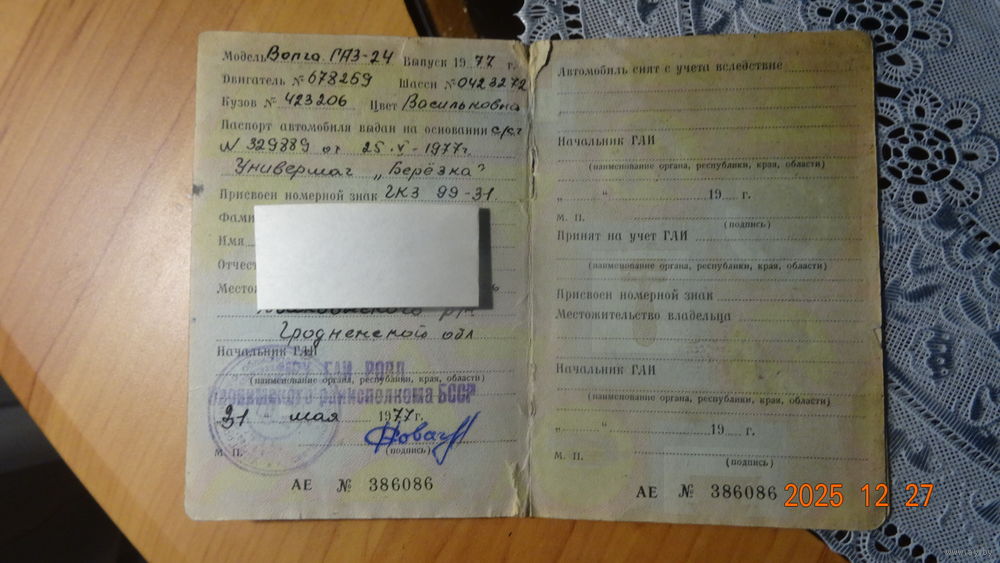 Модель Волга ГАЗ-24 Выпуск 1977 г.
Двигатель № 678259 Шасси № 0423272
Кузов № 423206 Цвет Васильковый
Паспорт автомобиля выдан на основании с/сч
№ 329889 от 25.V-1977г.
Универмаг „Берёзка"
Присвоен номерной знак ГКЗ 99-31.
Имя
Гродненской обл
Начальник ГАИ
ГАИ РОВД
(наименование органа, республики, края, области)
райисполкома БССР
31 " мая 1977г.
М. П. (подпись)
АЕ № 386086
Автомобиль снят с учета вследствие
Начальник ГАИ
(наименование органа, республики, края, области)
„ " 19 г.
М. П. (подпись)
Принят на учет ГАИ
(наименование органа, республики, края, области)
Присвоен номерной знак
Местожительство владельца
Начальник ГАИ
(наименование органа, республики, края, области)
„ " 19 г.
М. П. (подпись)
АЕ № 386086
2025 12 27
www.ay.by